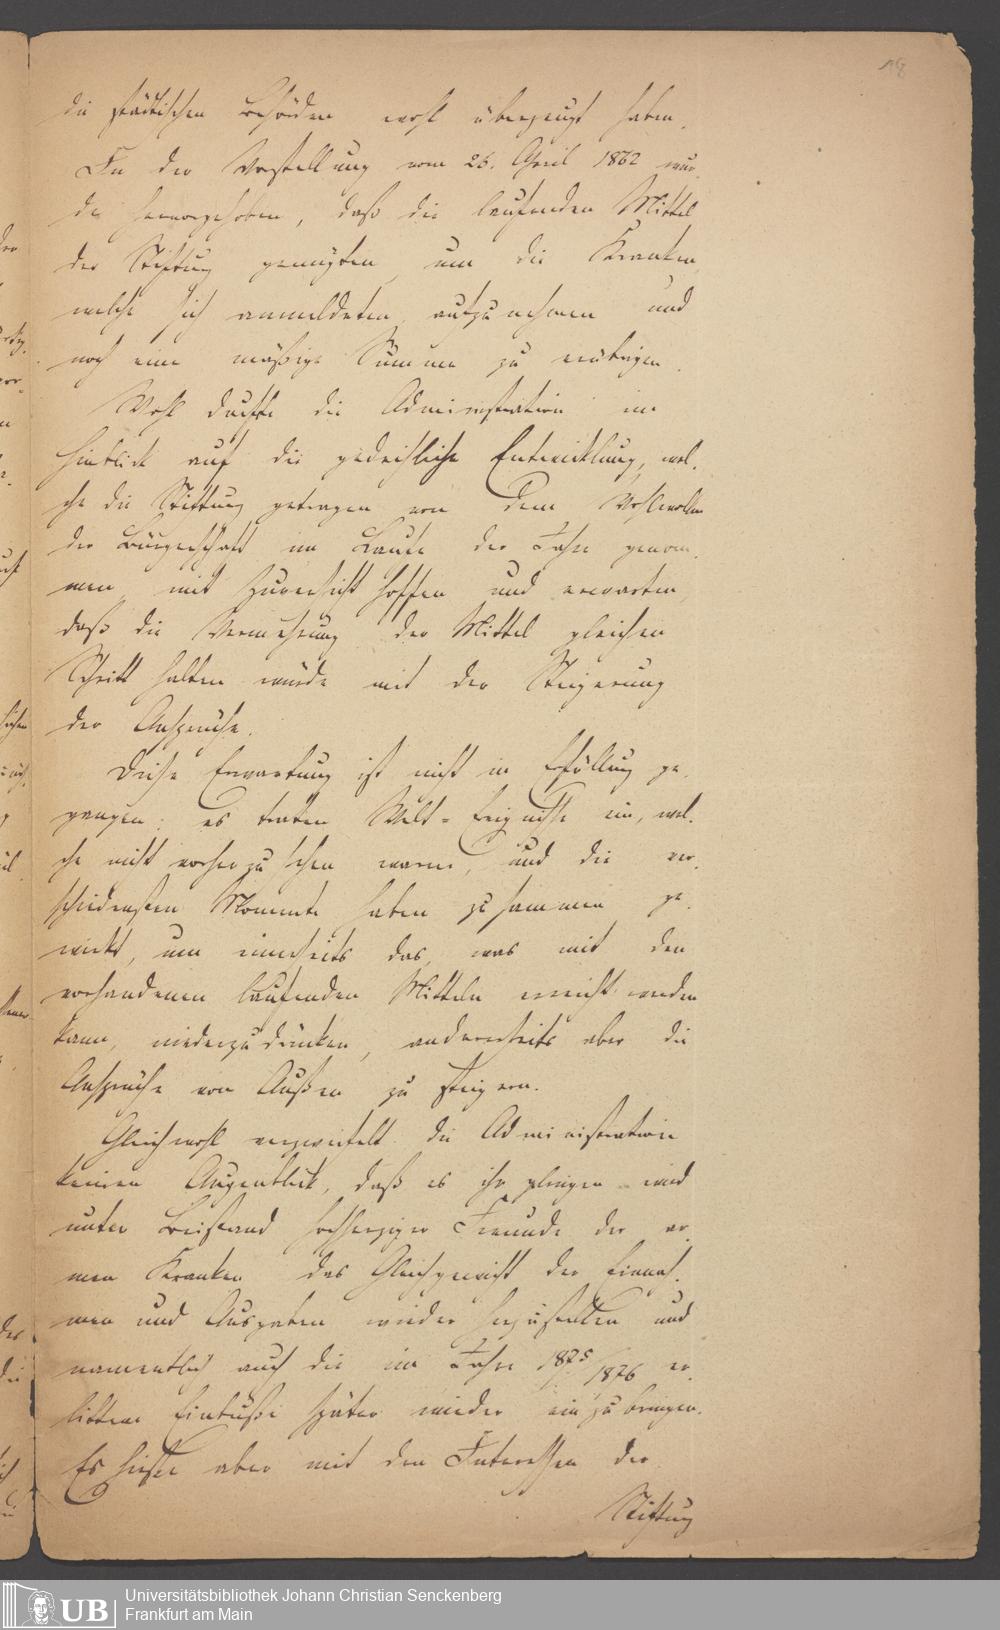 18
die städtischen Behörden wohl überzeugt haben.
In der Vorstellung vom 26. April 1862 wur-
de hervorgehoben, daß die laufenden Mittel
der Stiftung genügten, um die Kranken,
welche sich anmeldeten, aufzunehmen und
noch eine mäßige Summe zu erübrigen.
Wohl durfte die Administration im
Hinblick auf die gedeihliche Entwicklung, wel-
che die Stiftung getragen von dem Wohlwollen
der Bürgerschaft im Laufe der Jahre genom-
men, mit Zuversicht hoffen und erwarten,
daß die Vermehrung der Mittel gleichen
Schritt halten würde mit der Steigerung
der Ansprüche.
Diese Erwartung ist nicht in Erfüllung ge-
gangen: es traten Welt-Ereignisse ein, wel-
che nicht vorherzusehen waren, und die ver-
schiedensten Momente haben zusammen ge-
wirkt, um einerseits das, was mit den
vorhandenen laufenden Mitteln erreicht werden
kann, niederzudrücken, andererseits aber die
Ansprüche von Außen zu steigern.
Gleichwohl verzweifelt die Administration
keinen Augenblick, daß es ihr gelingen wird
unter Beistand hochherziger Freunde der ar-
men Kranken das Gleichgewicht der Einnah-
men und Ausgaben wieder herzustellen und
namentlich auch die im Jahre 1875/1876 er-
littene Einbuße später wieder einzubringen.
Es hieße aber mit den Interessen der
Stiftung
UB
Universitätsbibliothek Johann Christian Senckenberg
Frankfurt am Main